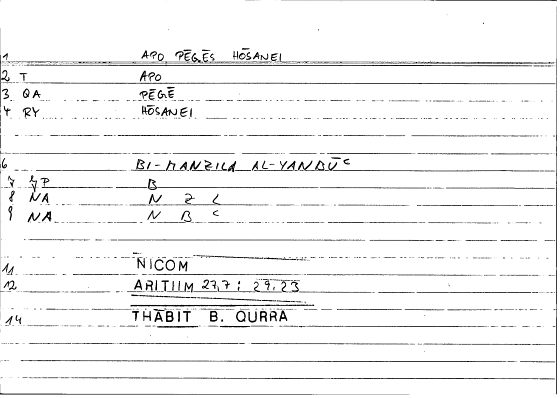 1 APO PĒGĒS HŌSANEI
2 T APO
3 QA PĒGĒ
4 RY HŌSANEI
6 BI-MANZILA AL-YANBŪʿ
7 P B
8 NA N Z L
9 NA N B ʿ
11 NICOM
12 ARITIIM 27,7 : 29.23
14 THĀBIT B. QURRA